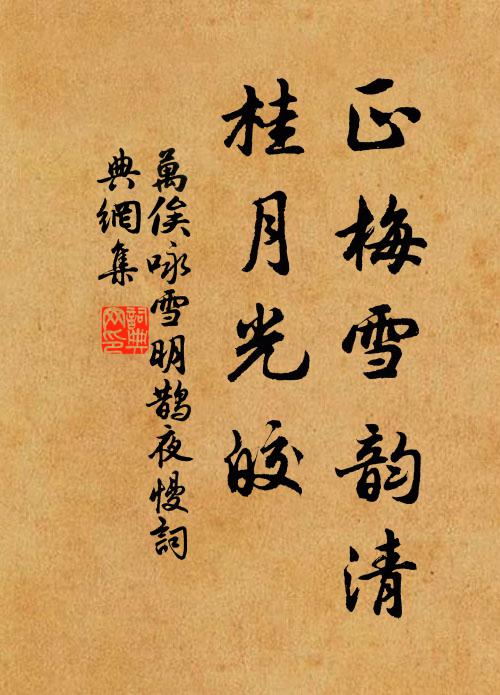 正梅雪韵清
桂月光皎
萬俟咏雪明鹊夜慢詞
典網集
詞典
网印